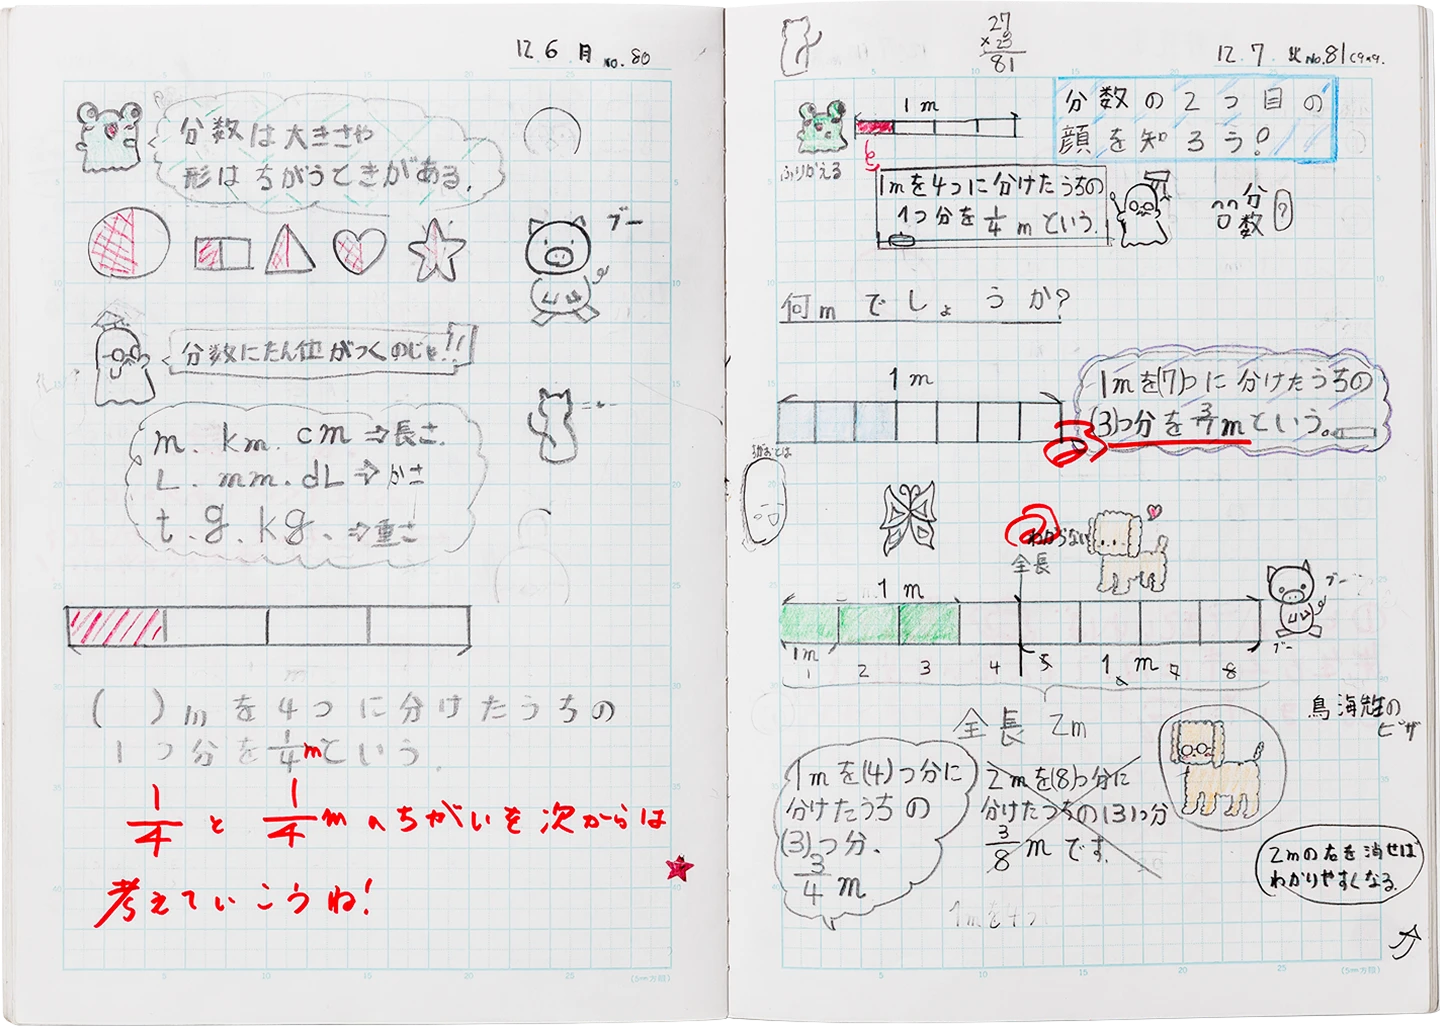 12 6 月 No. 80
分数は大きさや
形はちがうときがある。
ブー
分数にたん位がつくのじゃ!!
m. km. cm ⇒長さ.
L. mm. dL ⇒かさ
t. g. kg. ⇒重さ
( )mを4つに分けたうちの
1つ分を1/4mという。
1/4と1/4mのちがいを次からは
考えていこうね!
27
×23
81
12. 7. 火 No. 81
1m
分数の2つ目の
顔を知ろう!
ふりかえる
1mを4つに分けたうちの
1つ分を1/4mという.
分数?
何mでしょうか?
1m
1mを(7)つに分けたうちの
(3)つ分を3/7mという。
わからない
全長
1m
ブー
ブー
1m
1 2 3 4 5 6 7 8
1m
全長 2m
1mを(4)つ分に
分けたうちの
(3)つ分、
3/4 m
2mを(8)つ分に
分けたうちの(3)つ分
3/8 mです.
鳥海先生の
ピザ
2mの右を消せば
わかりやすくなる.
1mを4つ